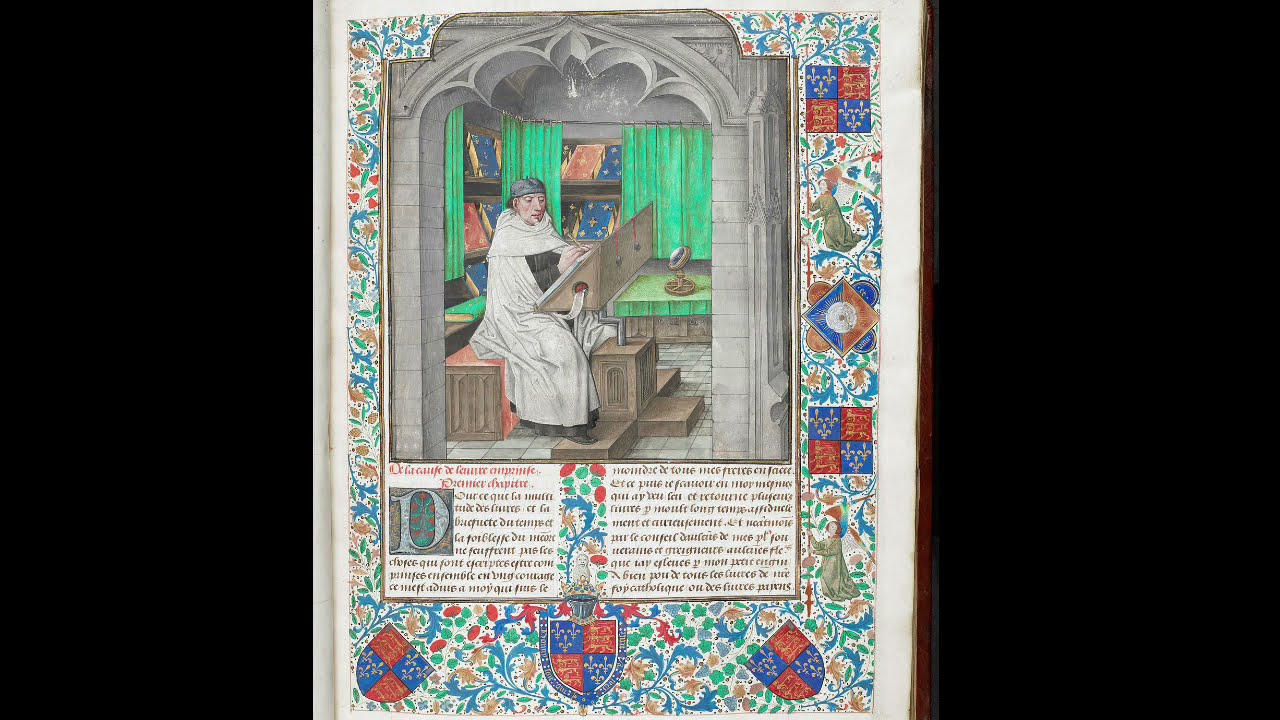 De la cause de leuure emprinse.
Premier chapitre.
Pour ce que la multi
tude des liures et la
briefuete du temps et
la foiblesse du
ne seuffrent pas les
choses qui sont escriptes estre com
prinses ensemble en vng courage
ce mest aduis a moy qui suis le
moindre de tous mes freres
Et ce puis ie scauoir en moy mesmes
qui ay veu leu et retourne plusieurs
liures par moult long temps assiduele
ment et curieusement. Et neatmois
par le conseil daulcus de mes
uerains et greigneurs
que iay esleues par mon petit engin
A bien pou de tous les liures de nre
foy catholique ou des liures payens